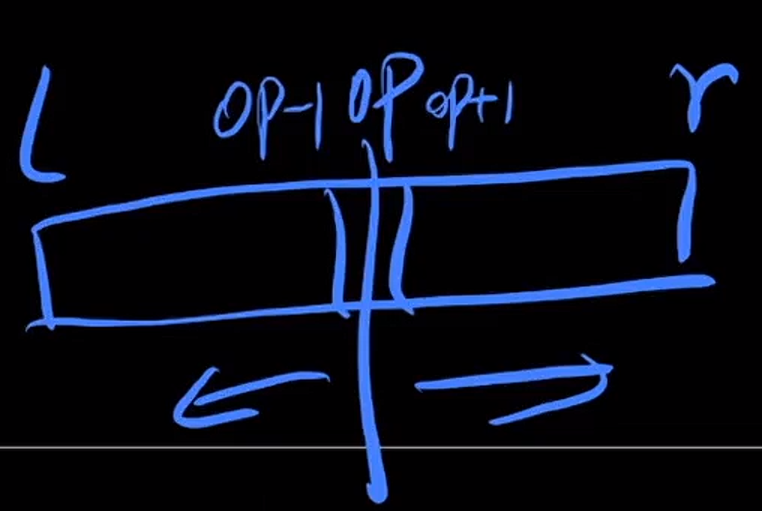 L op-1 op op+1 r